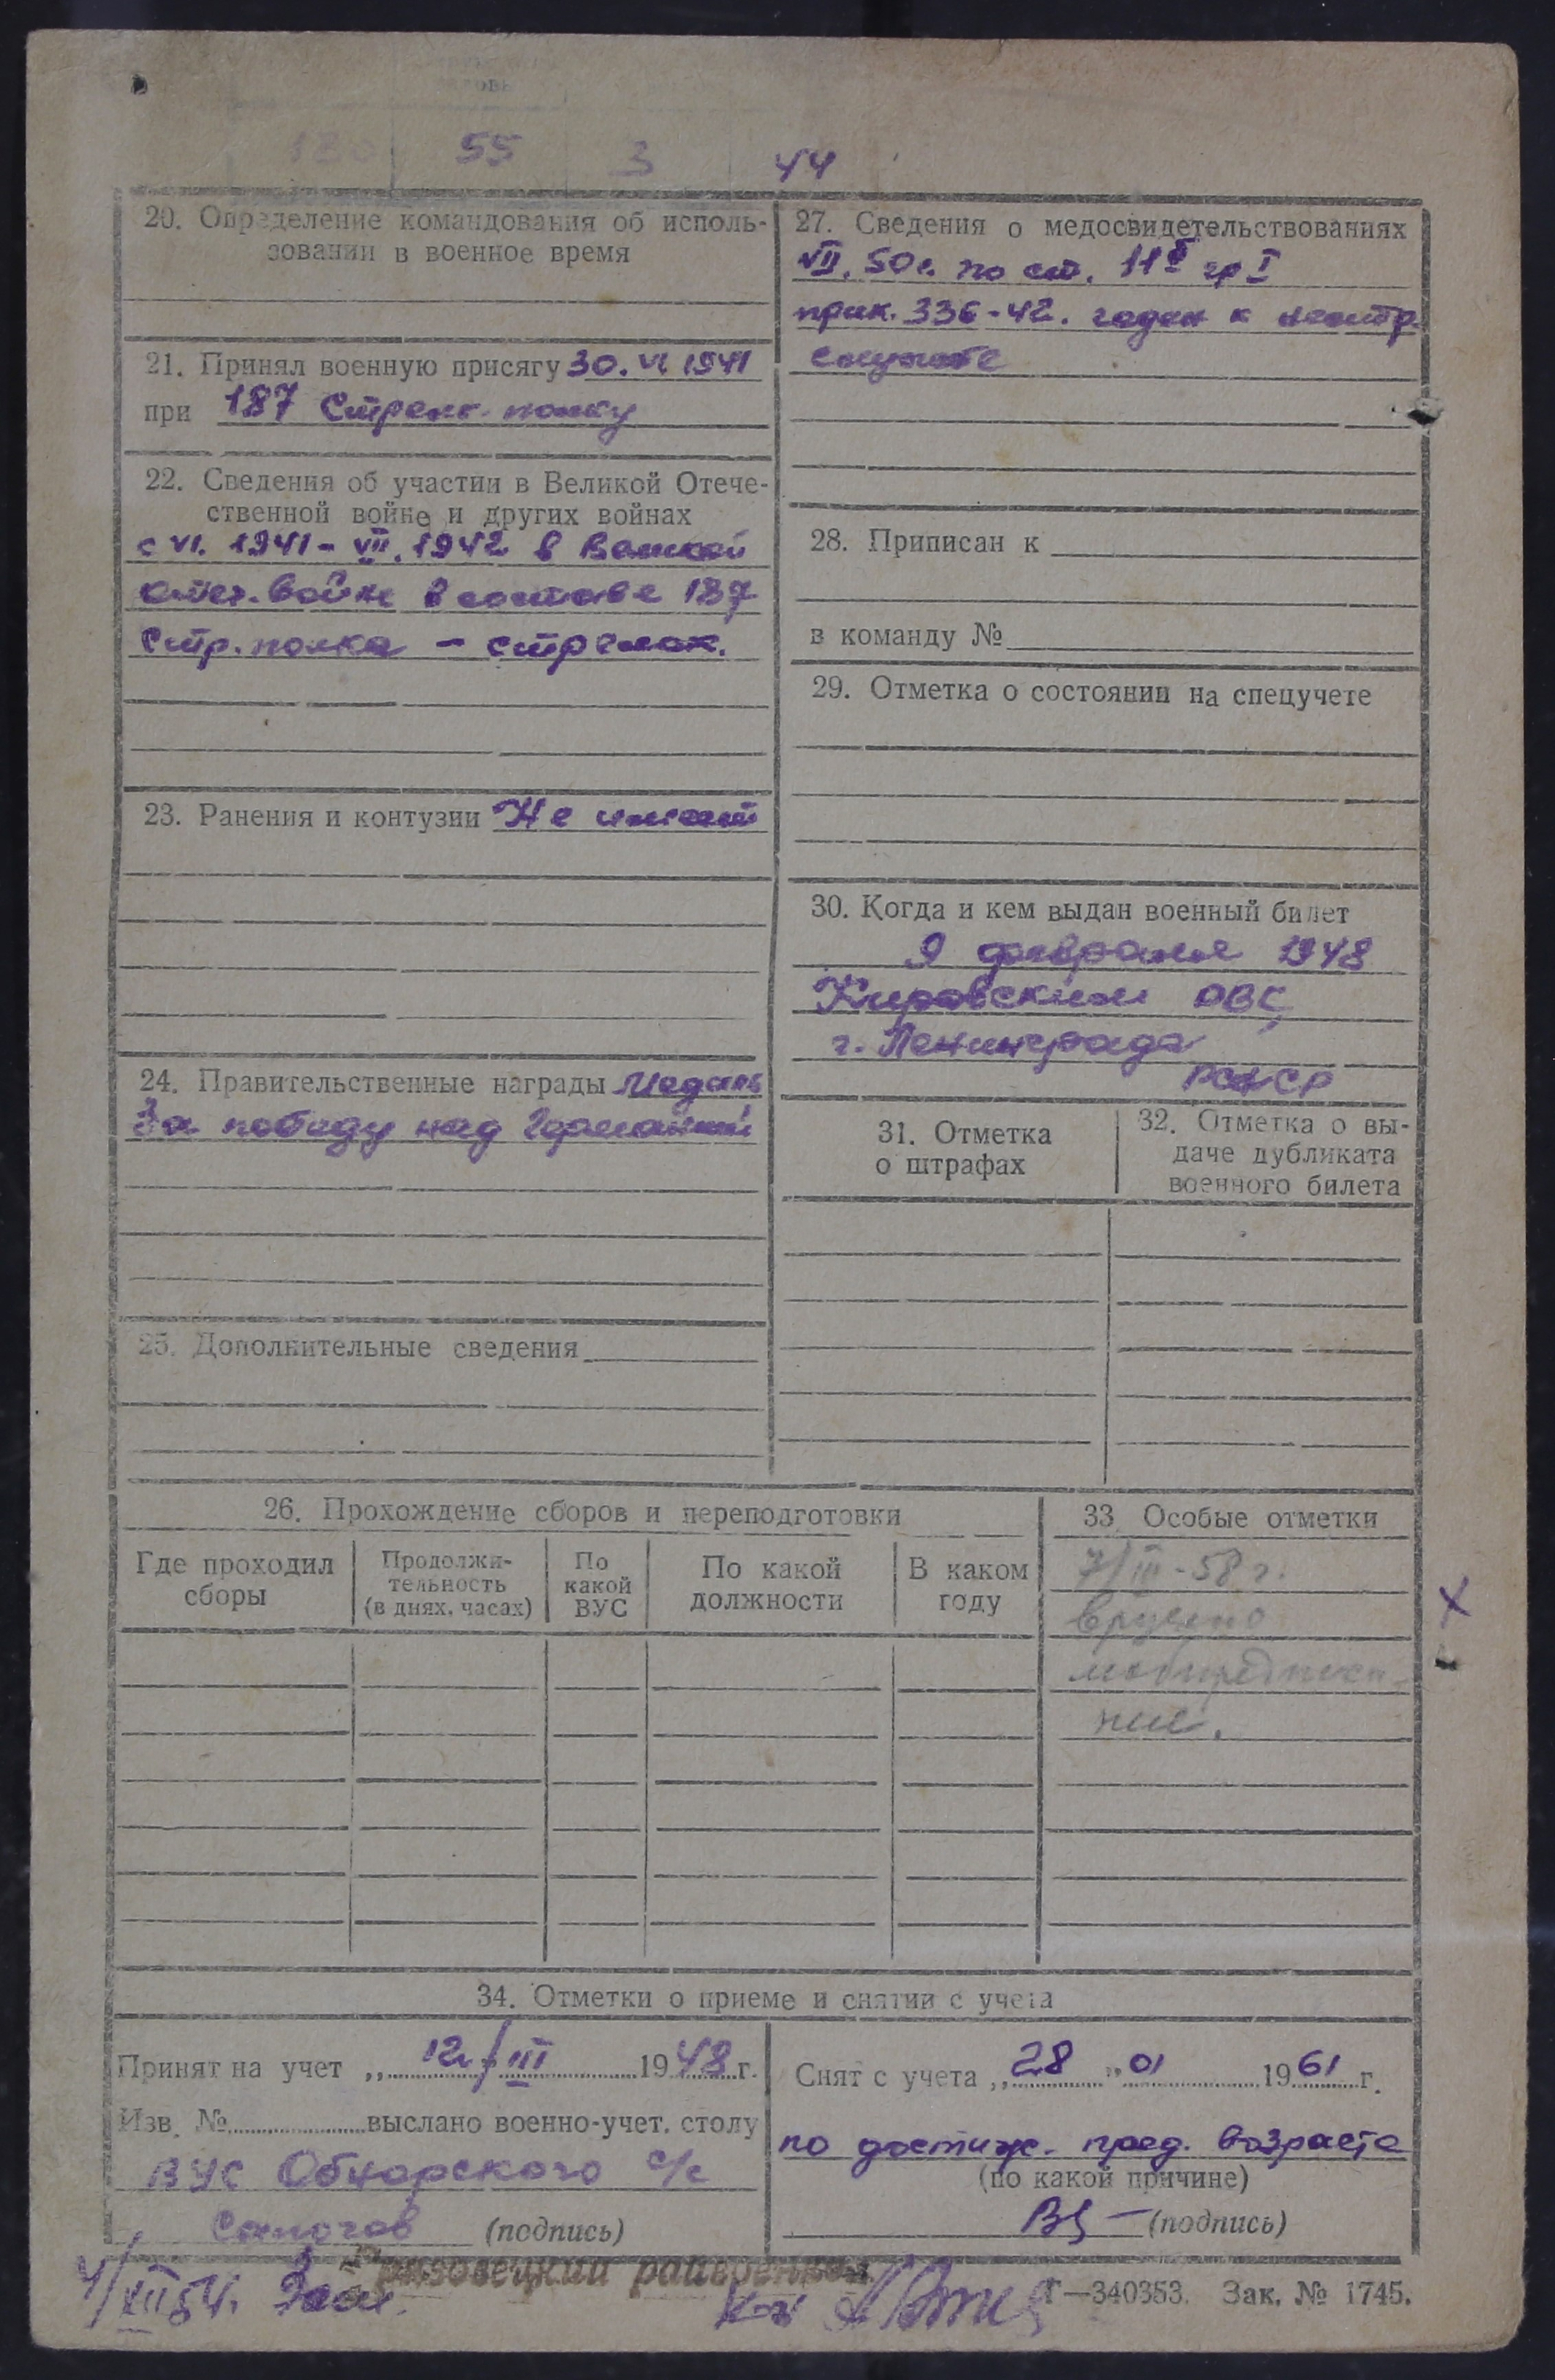 130 55 3 44
20. Определение командования об исполь-
зовании в военное время
21. Принял военную присягу 30. VI 1941
при 187 Стрелк. полку
22. Сведения об участии в Великой Отече-
ственной войне и других войнах
с VI. 1941 - VII. 1942 в Великой
отеч. войне в составе 187
Стр. полка - стрелок.
23. Ранения и контузии Не имеет
24. Правительственные награды Медаль
За победу над Германией
25. Дополнительные сведения
27. Сведения о медосвидетельствованиях
VII. 50 г. по ст. 11б гр I
прик. 336-42. годен к нестр.
службе
28. Приписан к
в команду №
29. Отметка о состоянии на спецучете
30. Когда и кем выдан военный билет
9 февраля 1948
Кировским ОВК
г. Ленинграда
РСФСР
31. Отметка
о штрафах
32. Отметка о вы-
даче дубликата
военного билета
26. Прохождение сборов и переподготовки
Где проходил
сборы
Продолжи-
тельность
(в днях, часах)
По
какой
ВУС
По какой
должности
В каком
году
33 Особые отметки
7/III-58 г.
вручено
мобпредписа-
ние.
34. Отметки о приеме и снятии с учета
Принят на учет „ 12/III 1948 г.
Изв. № выслано военно-учет. столу
ВУС Обнорского с/с
(подпись)
Снят с учета „ 28 " 01 1961 г.
по достиж. пред. возраста
(по какой причине)
(подпись)
Грязовецкий райвоенком
4/XII 54.
Г—340353. Зак. № 1745.